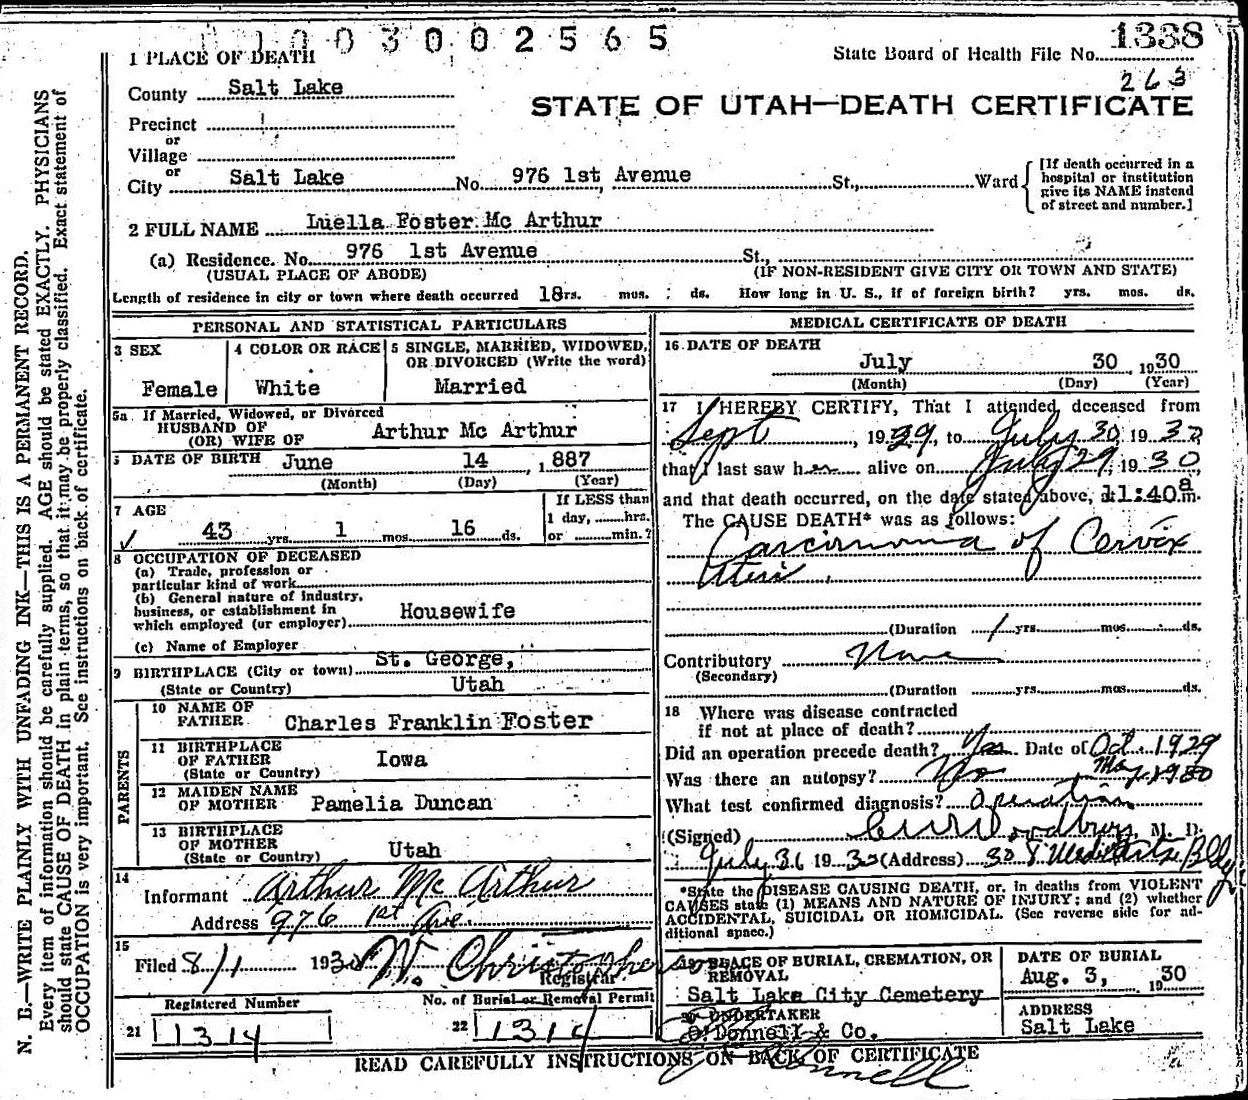 1003002565
1338
State Board of Health File No.
263
STATE OF UTAH—DEATH CERTIFICATE
1 PLACE OF DEATH
County Salt Lake
Precinct
or
Village
or
City Salt Lake No. 976 1st Avenue St., Ward
[If death occurred in a hospital or institution give its NAME instead of street and number.]
2 FULL NAME Luella Foster Mc Arthur
(a) Residence. No. 976 1st Avenue St.,
(USUAL PLACE OF ABODE) (IF NON-RESIDENT GIVE CITY OR TOWN AND STATE)
Length of residence in city or town where death occurred 18rs. mos. ds. How long in U. S., if of foreign birth? yrs. mos. ds.
PERSONAL AND STATISTICAL PARTICULARS
3 SEX
Female
4 COLOR OR RACE
White
5 SINGLE, MARRIED, WIDOWED,
OR DIVORCED (Write the word)
Married
5a If Married, Widowed, or Divorced
HUSBAND OF
(OR) WIFE OF Arthur Mc Arthur
DATE OF BIRTH June 14, 1887
(Month) (Day) (Year)
7 AGE
43 yrs. 1 mos. 16 ds.
If LESS than
1 day, hrs.
or min.?
8 OCCUPATION OF DECEASED
(a) Trade, profession or
particular kind of work
(b) General nature of industry,
business, or establishment in
which employed (or employer) Housewife
(c) Name of Employer
9 BIRTHPLACE (City or town) St. George,
(State or Country) Utah
PARENTS
10 NAME OF
FATHER Charles Franklin Foster
11 BIRTHPLACE
OF FATHER Iowa
(State or Country)
12 MAIDEN NAME
OF MOTHER Pamelia Duncan
13 BIRTHPLACE
OF MOTHER Utah
(State or Country)
14
Informant Arthur Mc Arthur
Address 976 1st Ave.
15
Filed 8/1 1930 W. Christopherson
Registrar
Registered Number
21 1314
No. of Burial or Removal Permit
22 1314
MEDICAL CERTIFICATE OF DEATH
16 DATE OF DEATH
July 30, 1930
(Month) (Day) (Year)
17 I HEREBY CERTIFY, That I attended deceased from
Sept, 1929, to July 30 1930,
that I last saw her alive on July 29, 1930,
and that death occurred, on the date stated above, at 11:40 a m.
The CAUSE DEATH* was as follows:
Carcinoma of Cervix
Uteri.
(Duration 1 yrs. mos. ds.
Contributory None
(Secondary)
(Duration yrs. mos. ds.
18 Where was disease contracted
if not at place of death?
Did an operation precede death? Yes Date of Oct. 1929
May 1930
Was there an autopsy? No
What test confirmed diagnosis? Operation
(Signed) Woodbury, M. D.
July 31 1930 (Address)
*State the DISEASE CAUSING DEATH, or, in deaths from VIOLENT
CAUSES state (1) MEANS AND NATURE OF INJURY; and (2) whether
ACCIDENTAL, SUICIDAL OR HOMICIDAL. (See reverse side for ad-
ditional space.)
19 PLACE OF BURIAL, CREMATION, OR
REMOVAL
Salt Lake City Cemetery
DATE OF BURIAL
Aug. 3, 1930
20 UNDERTAKER
O'Donnell & Co.
ADDRESS
Salt Lake
READ CAREFULLY INSTRUCTIONS ON BACK OF CERTIFICATE
N. B.—WRITE PLAINLY WITH UNFADING INK—THIS IS A PERMANENT RECORD.
Every item of information should be carefully supplied. AGE should be stated EXACTLY. PHYSICIANS
should state CAUSE OF DEATH in plain terms, so that it may be properly classified. Exact statement of
OCCUPATION is very important. See instructions on back of certificate.